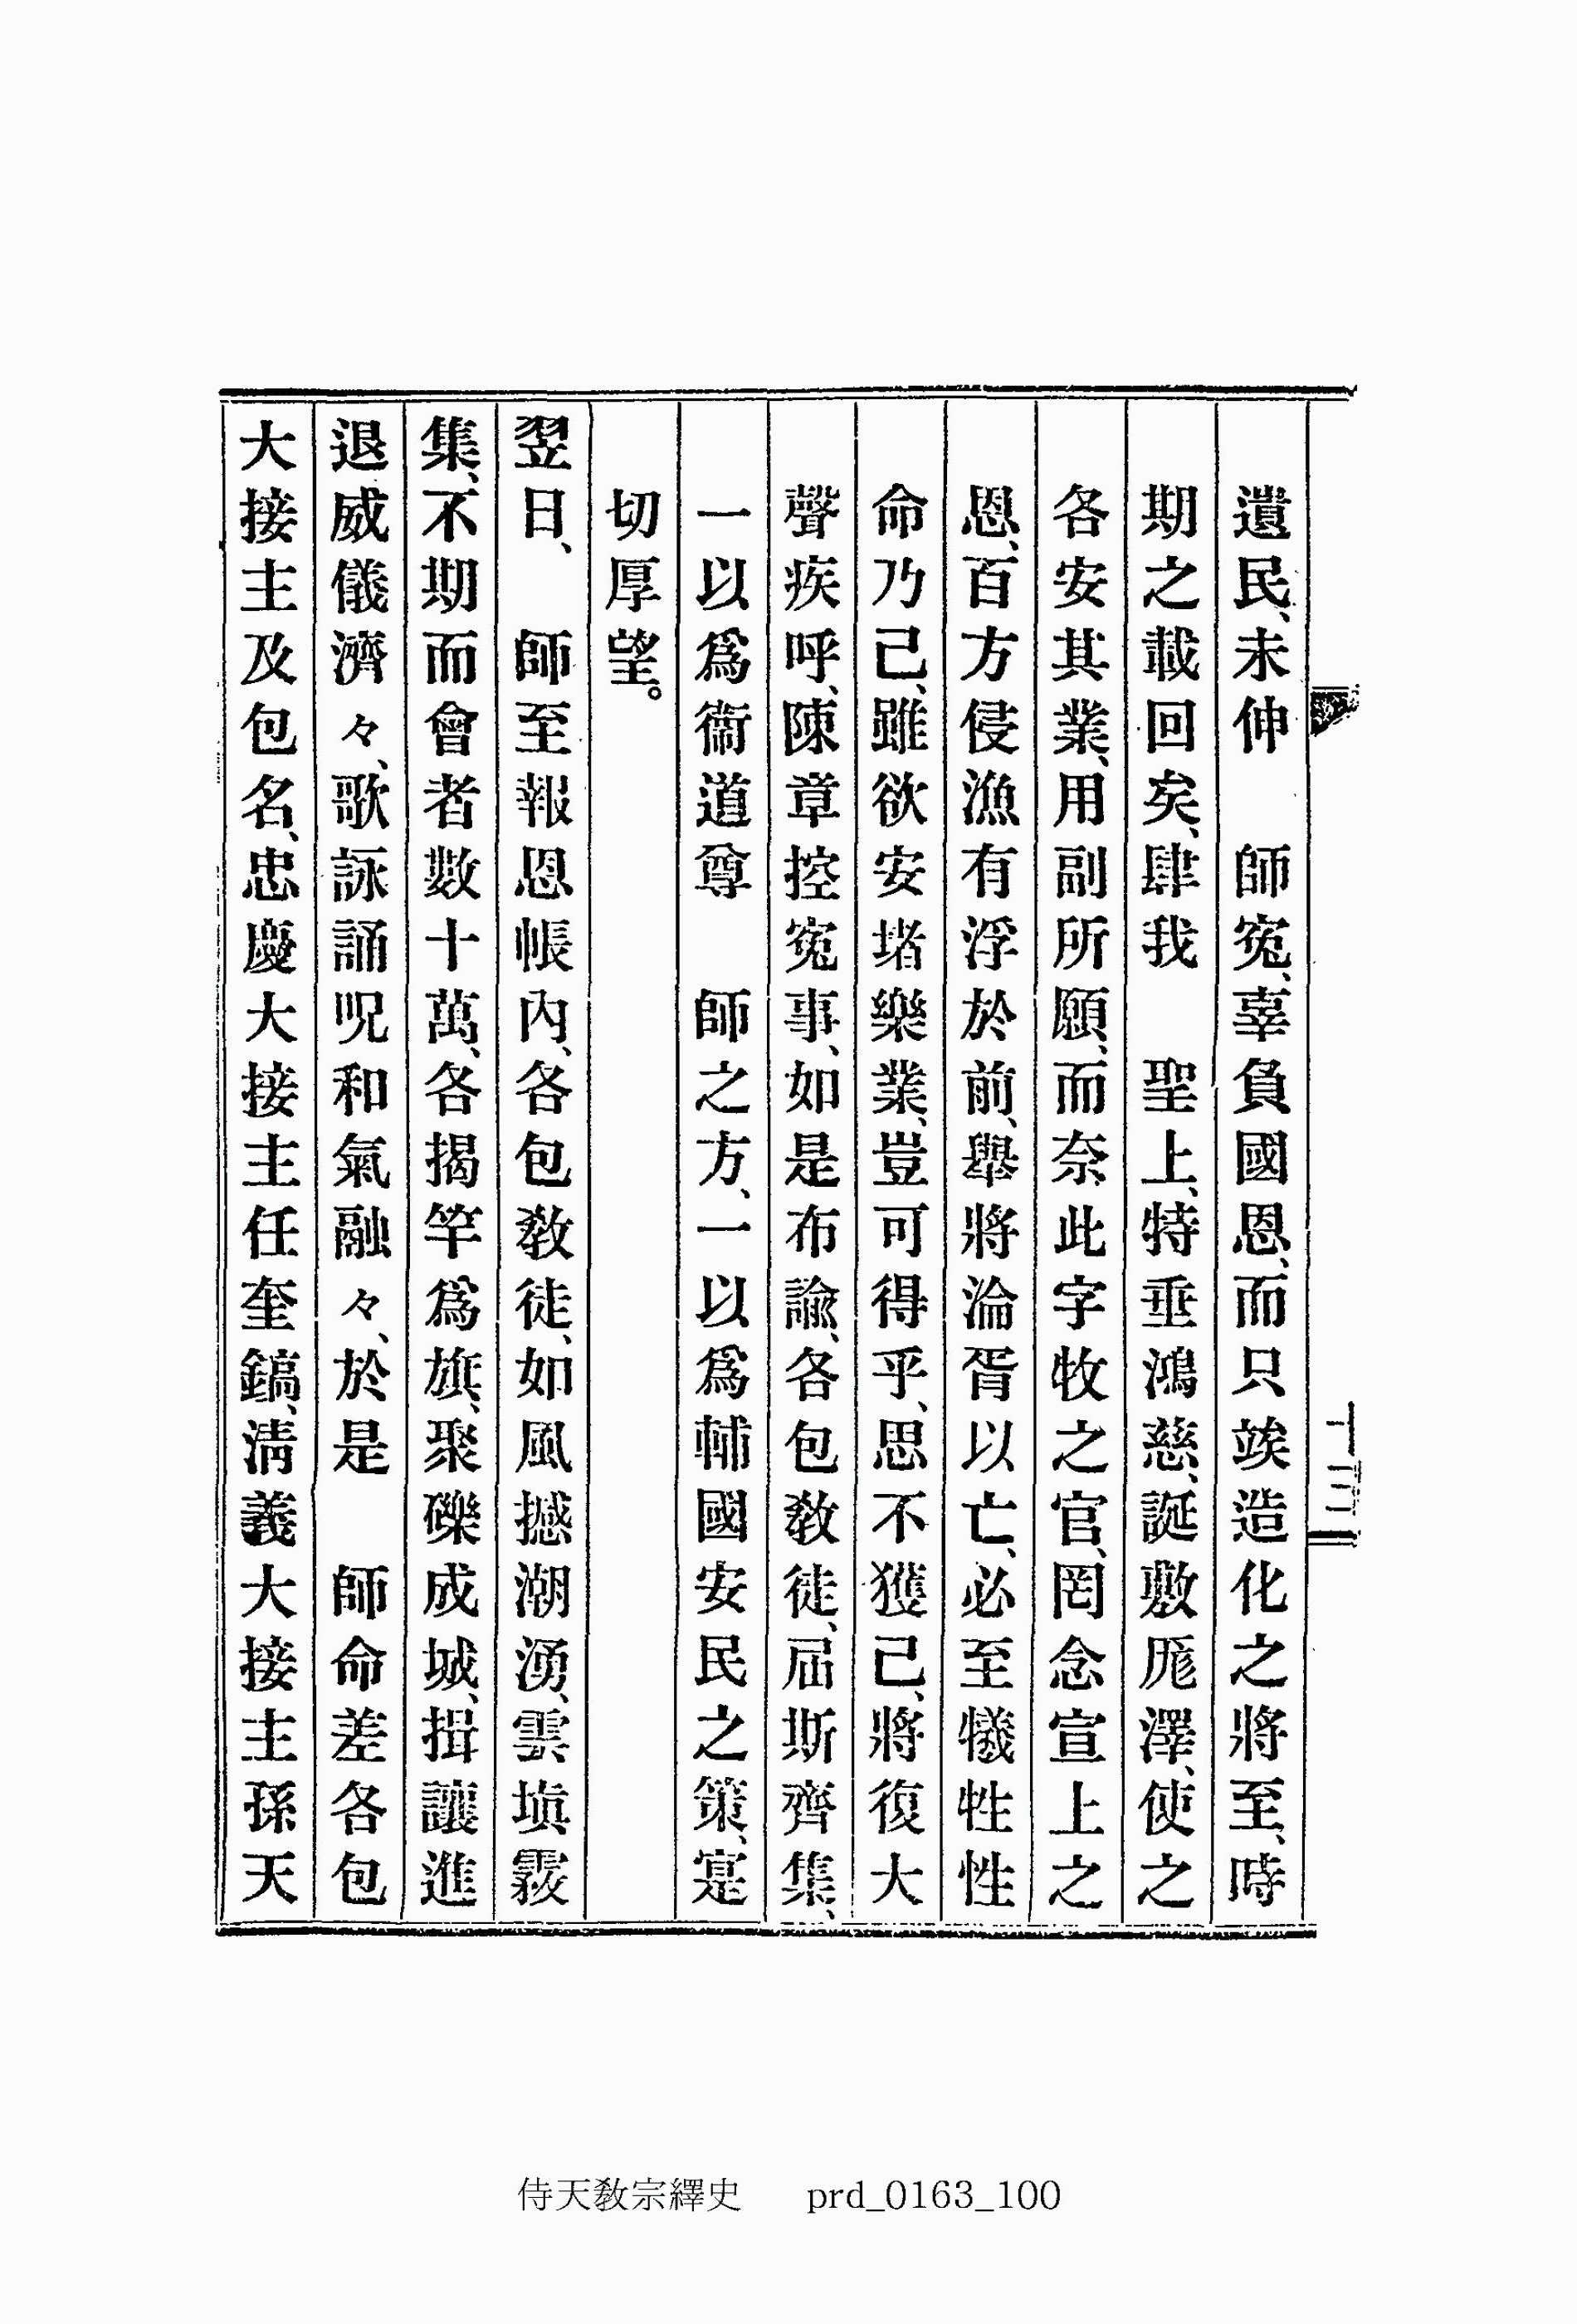 遺民、未伸　師寃、辜負國恩、而只竢造化之將至、時
期之載回矣、肆我　聖上、特垂鴻慈、誕敷厖澤、使之
各安其業、用副所願、而奈此字牧之官、罔念宣上之
恩、百方侵漁有浮於前、擧將淪胥以亡、必至犧牲性
命乃已、雖欲安堵樂業、豈可得乎、思不獲已、將復大
聲疾呼、陳章控寃事、如是布諭、各包敎徒、屆斯齊集、
一以爲衞道尊　師之方、一以爲輔國安民之策、寔
切厚望。
翌日、　師至報恩帳內、各包敎徒、如風撼潮湧、雲塡霧
集、不期而會者數十萬、各揭竿爲旗、聚礫成城、揖讓進
退威儀濟々、歌詠誦呪和氣融々、於是　師命差各包
大接主及包名、忠慶大接主任奎鎬、淸義大接主孫天
十三
侍天敎宗繹史　prd_0163_100